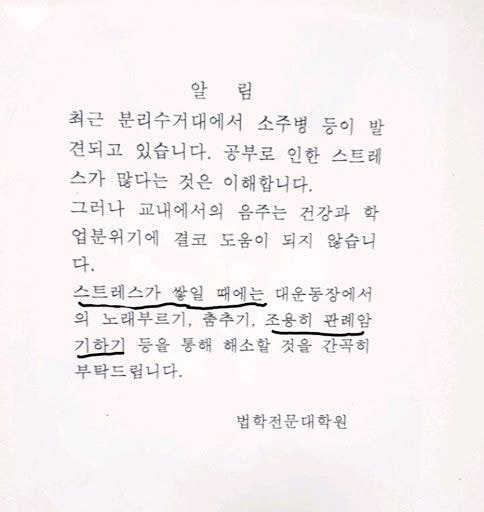 알 림
최근 분리수거대에서 소주병 등이 발
견되고 있습니다. 공부로 인한 스트레
스가 많다는 것은 이해합니다.
그러나 교내에서의 음주는 건강과 학
업분위기에 결코 도움이 되지 않습니
다.
스트레스가 쌓일 때에는 대운동장에서
의 노래부르기, 춤추기, 조용히 판례암
기하기 등을 통해 해소할 것을 간곡히
부탁드립니다.
법학전문대학원